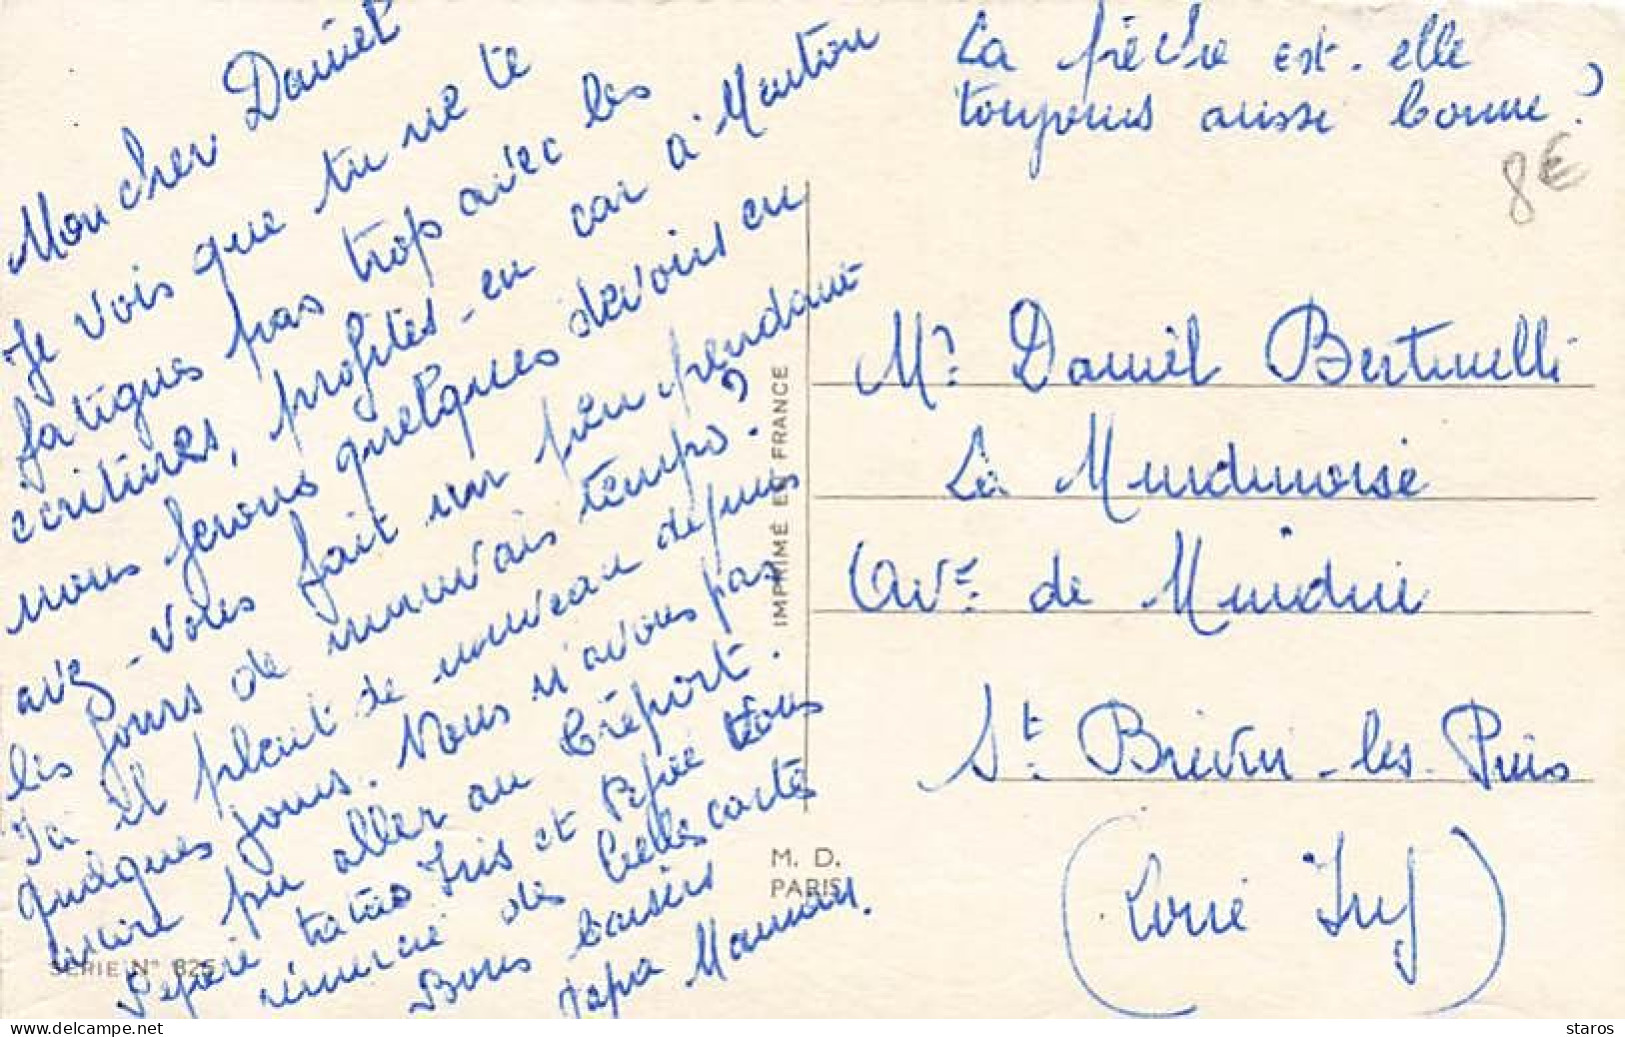 Mon cher Daniel
Je vois que tu ne te
fatigues pas trop avec les
écritures, profites-en car à Menton
nous ferons quelques devoirs en
avez-vous fait un peu pendant
les jours de mauvais temps?
Ici il pleut de nouveau depuis
quelques jours. Nous n'avons pas
encore pu aller au Tréport.
Pépère tatas Iris et Pépée tous
remercie des belles cartes
Bons baisers
Papa Maman.
La pêche est-elle
toujours aussi bonne?
8€
Mr Daniel Bertinelli
La Mindinoise
Ave de Mindin
St Brévin-les-Pins
(Loire Inf)
IMPRIMÉ EN FRANCE
M. D.
PARIS
SÉRIE N° 825
staros delcampe.net